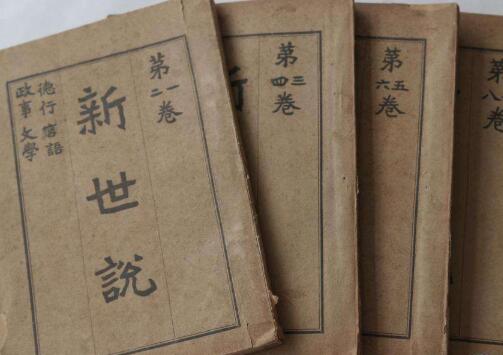 第一二卷
新世說
德行 言語
政事 文學
第三四卷
新
第五六卷
第八卷